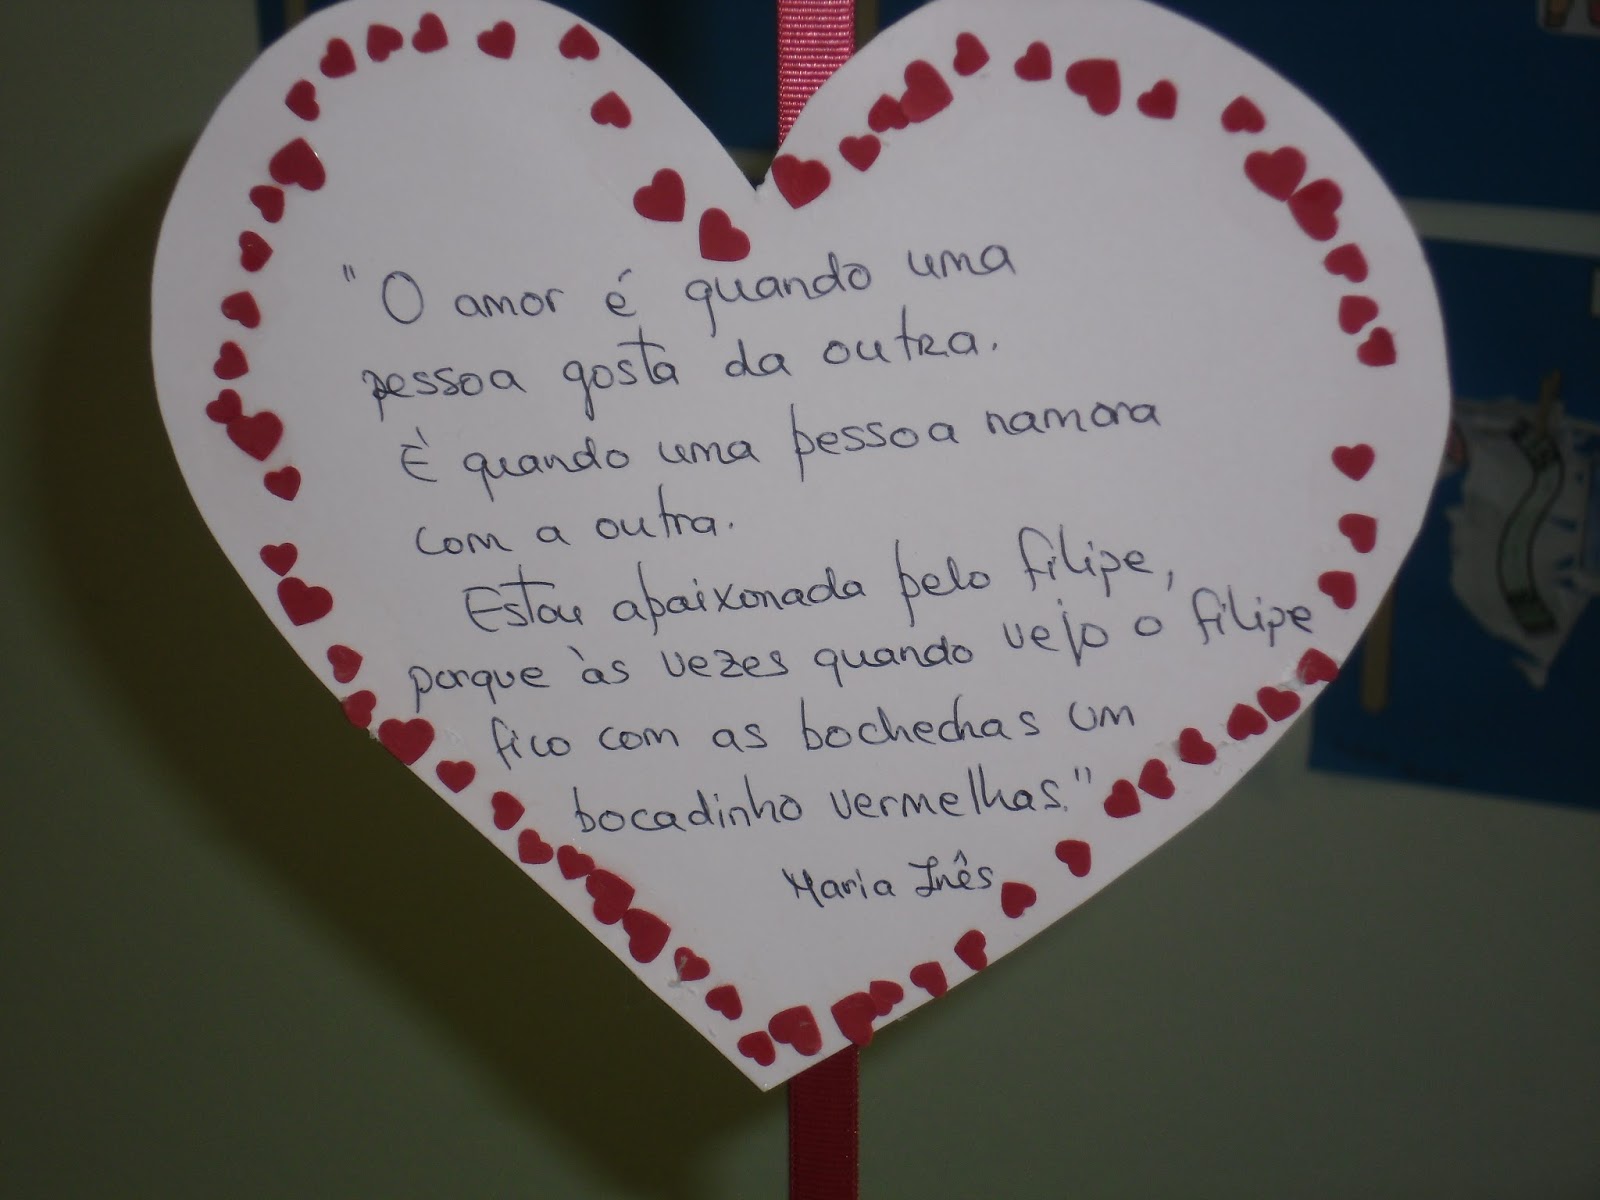 "O amor é quando uma
pessoa gosta da outra.
É quando uma pessoa namora
com a outra.
Estou apaixonada pelo Filipe,
porque às vezes quando vejo o Filipe
fico com as bochechas um
bocadinho vermelhas."
Maria Inês